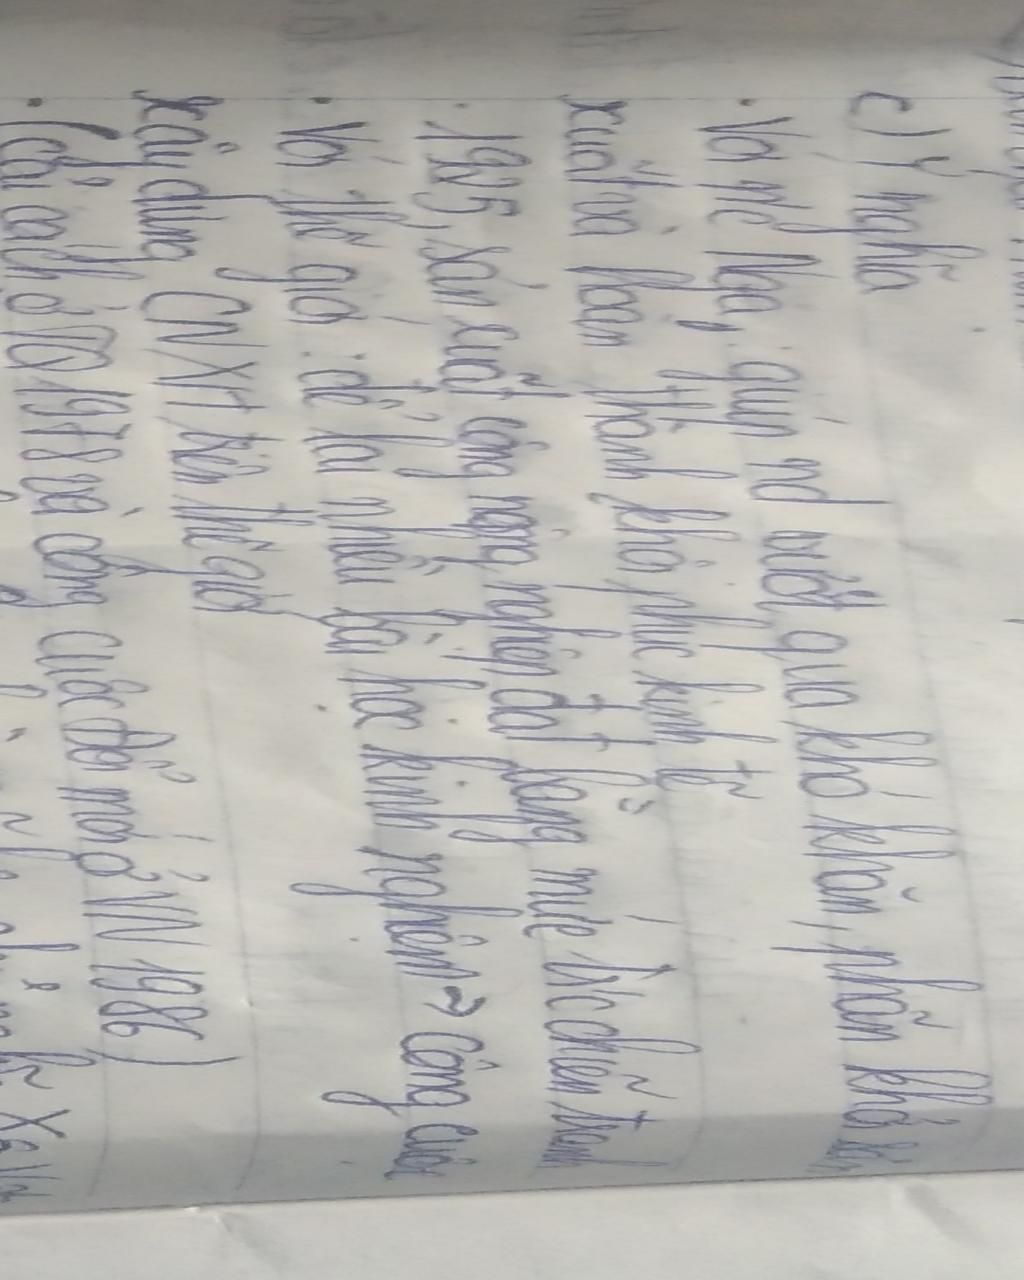 c) Ý nghĩa
• Với nc Nga: giúp nd vượt qua khó khăn, phấn khởi sản
xuất và hoàn thành khôi phục kinh tế
• 1925, sản xuất công nông nghiệp đạt bằng mức trc chiến tranh
• Với thế giới: để lại nhiều bài học kinh nghiệm → Công cuộc
xây dựng CNXH trên thế giới
• (cải cách ở TQ 1978 và công cuộc đổi mới ở VN 1986)